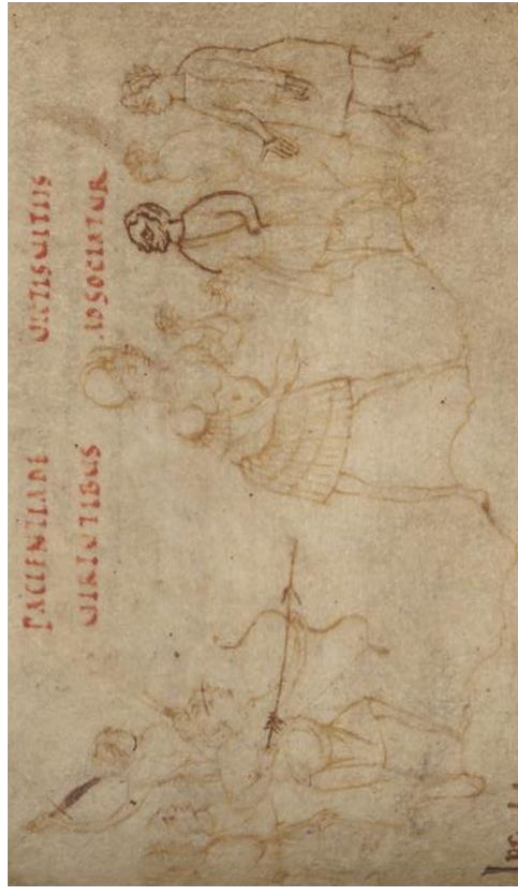 PACIENTIA DE UICTIS UITIIS
UIRTUTIBUS ADSOCIATUR